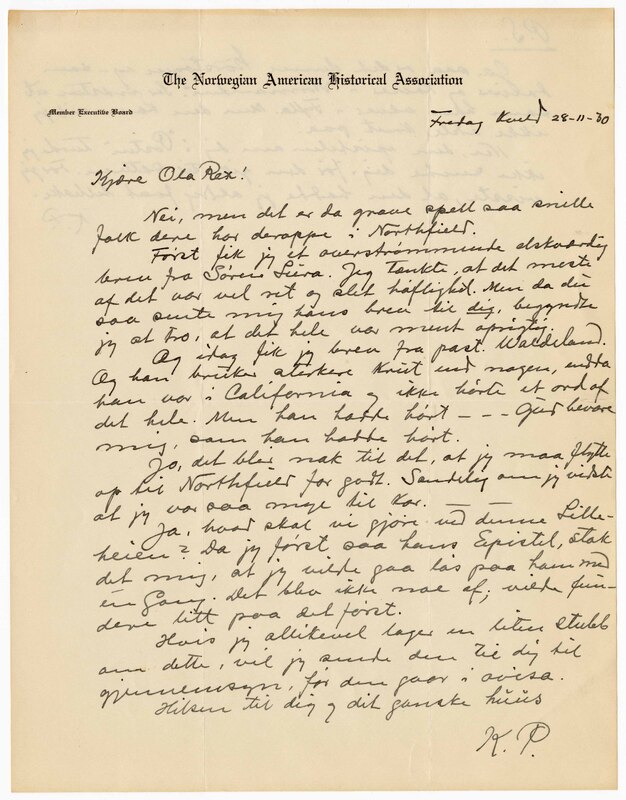 The Norwegian American Historical Association
Member Executive Board
Fredag Kveld 28-11-30
Kjære Ola Rex!
Nei, men det er da grove spell saa snille
folk dere har deroppe i Northfield.
Først fik jeg et overstrømmende elskværdig
brev fra Søren Liera. Jeg tænkte, at det meste
af det var vel ret og slet høflighet. Men da du
saa sente mig hans brev til dig, begyndte
jeg at tro, at det hele var ment oprigtig.
Og idag fik jeg brev fra past. Maldeland.
Og han bruker sterkere Krut end nogen, endda
han var i California og ikke hørte et ord af
det hele. Men han hadde hørt - - - Gud bevare
mig, som han hadde hørt.
Jo, det blir nok til det, at jeg maa flytte
op til Northfield for godt. Sandelig om jeg vidste
at jeg var saa mye til Kar.
Ja, hvad skal vi gjøre ved denne Lille-
heien? Da jeg først saa hans Epistel, stak
det mig, at jeg vilde gaa løs paa ham med
én Gang. Det blev ikke noe af; vilde fun-
dere litt paa det først.
Hvis jeg allikevel lager en liten stubb
om dette, vil jeg sende den til dig til
gjennemsyn, før den gaar i avisa.
Hilsen til dig og dit ganske hüüs
K. P.